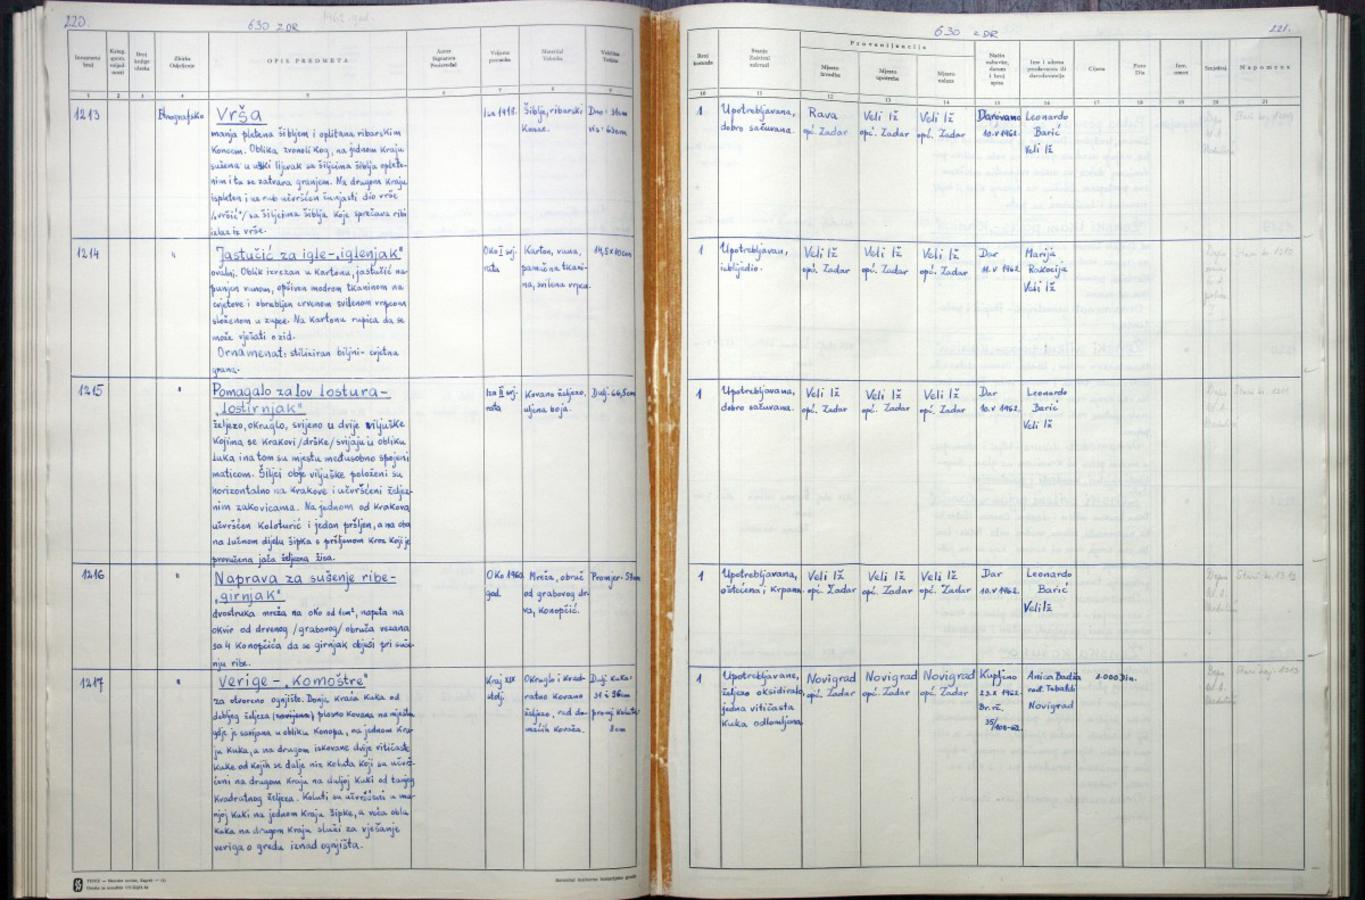 220.
630 ZDR
1962. god.
Inventarni broj
Zbirka Odjeljenje
OPIS PREDMETA
Vrijeme postanka
Materijal Tehnika
1 2 3 4 5 6 7 8 9
1213
Etnografska
Vrša
manja pletena šibljem i oplitana ribarskim
koncem. Oblika zvonolikog, na jednom kraju
sužena u uski lijevak sa šiljcima šiblja oplete-
nim i tu se zatvara granjem. Na drugom kraju
ispleten i uz rub učvršćen čunjasti dio vrše
/„vršić“/ sa šiljcima šiblja koje sprečava ribi
izlaz iz vrše.
Iza 1918.
Šiblje, ribarski
konac.
1214
"
Jastučić za igle-„iglenjak"
ovalnj. Oblik izrezan u kartonu, jastučić na-
punjen vunom, opšiven modrom tkaninom na
cvjetove i obrubljen crvenom svilenom vrpcom
složenom u zupce. Na kartonu rupica da se
može vješati o zid.
Ornamenat: stiliziran biljni- cvjetna
grana.
Oko I svj.
rata
Karton, vuna,
pamučna tkani-
na, svilena vrpca.
14,5x10cm
1215
"
Pomagalo za lov lostura-
„lostirnjak"
željezo, okruglo, svijeno u dvije viljuške
kojima se krakovi /drške/ svijaju u obliku
luka i na tom su mjestu međusobno spojeni
maticom. Šiljci obje viljuške položeni su
horizontalno na krakove i učvršćeni željez-
nim zakovicama. Na jednom od krakova
učvršćen koloturić i jedan pršljen, a na oba
na lučnom dijelu šipka s pršljenom kroz koji je
provučena jača željezna žica.
Iza II svj.
rata
Kovano željezo,
uljena boja.
Dulj. 66,5cm
1216
"
Naprava za sušenje ribe-
„girnjak"
dvostruka mreža na oko od 1cm², napeta na
okvir od drvenog /grabovog/ obruča vezana
sa 4 konopčića da se girnjak objesi pri suše-
nju ribe.
Oko 1960
god.
Mreža, obruč
od grabovog dr-
va, konopčić.
1217
Verige - „Komoštre"
za otvoreno ognjište. Donja kraća kuka od
debljeg željeza plosno kovana na mjestu
gdje je savijena u obliku konopa, na jednom kra-
ju kuka, a na drugom iskovane dvije vitičaste
kuke od kojih se dalje niz koluta koji su učvrš-
ćeni na drugom kraju na duljoj kuki od tanjeg
kvadratnog željeza. Koluti su učvršćeni u ma-
njoj kuki na jednom kraju šipke, a veća obla
kuka na drugom kraju služi za vješanje
veriga o gredu iznad ognjišta.
Kraj XIX
stolj.
Okruglo i kvad-
ratno kovano
željezo, rad do-
maćih kovača.
Dulj. kuka:
31 i 96cm
promj. koluta:
8cm
630 ZDR
221.
Provenijencija
Mjesto izvedbe
Mjesto upotrebe
Mjesto nalaza
Cijena
Napomena
10 11 12 13 14 15 16 17 18 19 20 21
1
Upotrebljavana,
dobro sačuvana.
Rava
opć. Zadar
Veli Iž
opć. Zadar
Veli Iž
opć. Zadar
Darovano
10.V 1962.
Leonardo
Barić
Veli Iž
1
Upotrebljavan,
izblijedio.
Veli Iž
opć. Zadar
Veli Iž
opć. Zadar
Veli Iž
opć. Zadar
Dar
11.V 1962.
Marija
Rakocija
Veli Iž
1
Upotrebljavana,
dobro sačuvana.
Veli Iž
opć. Zadar
Veli Iž
opć. Zadar
Veli Iž
opć. Zadar
Dar
10.V 1962.
Leonardo
Barić
Veli Iž
1
Upotrebljavana,
oštećena i krpana.
Veli Iž
opć. Zadar
Veli Iž
opć. Zadar
Veli Iž
opć. Zadar
Dar
10.V 1962.
Leonardo
Barić
Veli Iž
1
Upotrebljavane,
željezo oksidiralo,
jedna vitičasta
kuka odlomljena.
Novigrad
opć. Zadar
Novigrad
opć. Zadar
Novigrad
opć. Zadar
Kupljeno
1962.
Br. rč.
Anica
Novigrad
1.000 Din.